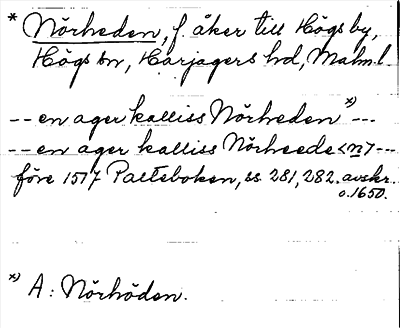 * Nörheden, f. åker till Högs by,
Högs sn, Harjagers hd, Malm.l.
-- en ager kalliss Nörheden *) --
-- en ager kalliss Nörheede<n> --
före 1517 Palteboken, ss. 281, 282. avskr.
o. 1650.
*) A: Nörhöden.